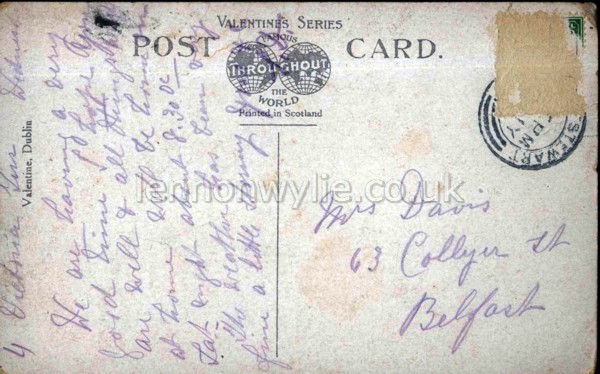 VALENTINE'S SERIES
POST CARD.
FAMOUS
THROUGHOUT
THE
WORLD
Printed in Scotland
Valentine, Dublin
STEWART
PM
lennonwylie.co.uk
Mrs Davis
63 Collyer St
Belfast
4 Victoria
We are having a very
good time hope you
are well & all things
will be home
at home about 8.30 oc
Sat night
The weather has been very
fine a little stormy